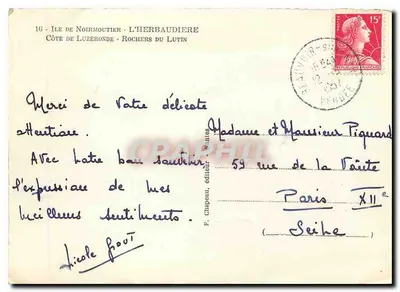 16 - ILE DE NOIRMOUTIER - L'HERBAUDIERE
CÔTE DE LUZÉRONDE - ROCHERS DU LUTIN
15F
VENDEE
Merci de votre délicate
attention.
Avec notre bon souvenir
l'expression de mes
meilleurs sentiments.
Nicole
F. Chapeau, éditeur, Nantes
Madame et Monsieur Piquard
59 rue de la Voûte
Paris XIIe
(Seine)